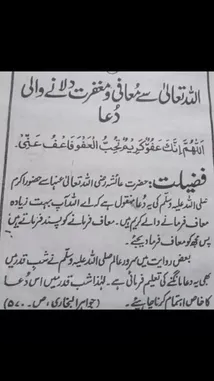 اللہ تعالیٰ سے معافی و مغفرت دلانے والی
دعا
اَللّٰهُمَّ اِنَّكَ عَفُوٌّ كَرِيْمٌ تُحِبُّ الْعَفْوَ فَاعْفُ عَنِّيْ.
فضیلت: حضرت عائشہ رضی اللہ تعالیٰ عنہا سے حضور اکرم
صلی اللہ علیہ وسلم کی یہ دعا منقول ہے کہ اے اللہ آپ بہت زیادہ
معاف فرمانے والے کریم ہیں۔ معاف فرمانے کو پسند فرماتے ہیں
پس مجھ کو معاف فرما دیجئے۔
بعض روایت میں سرور عالم صلی اللہ علیہ وسلم نے شب قدر میں
بھی یہ دعا مانگنے کی تعلیم فرمائی ہے۔ لہٰذا شب قدر میں اس دُعا
کا خاص اہتمام کرنا چاہیئے۔ (جواہر البخاری، ص۔ ۵۷۰)